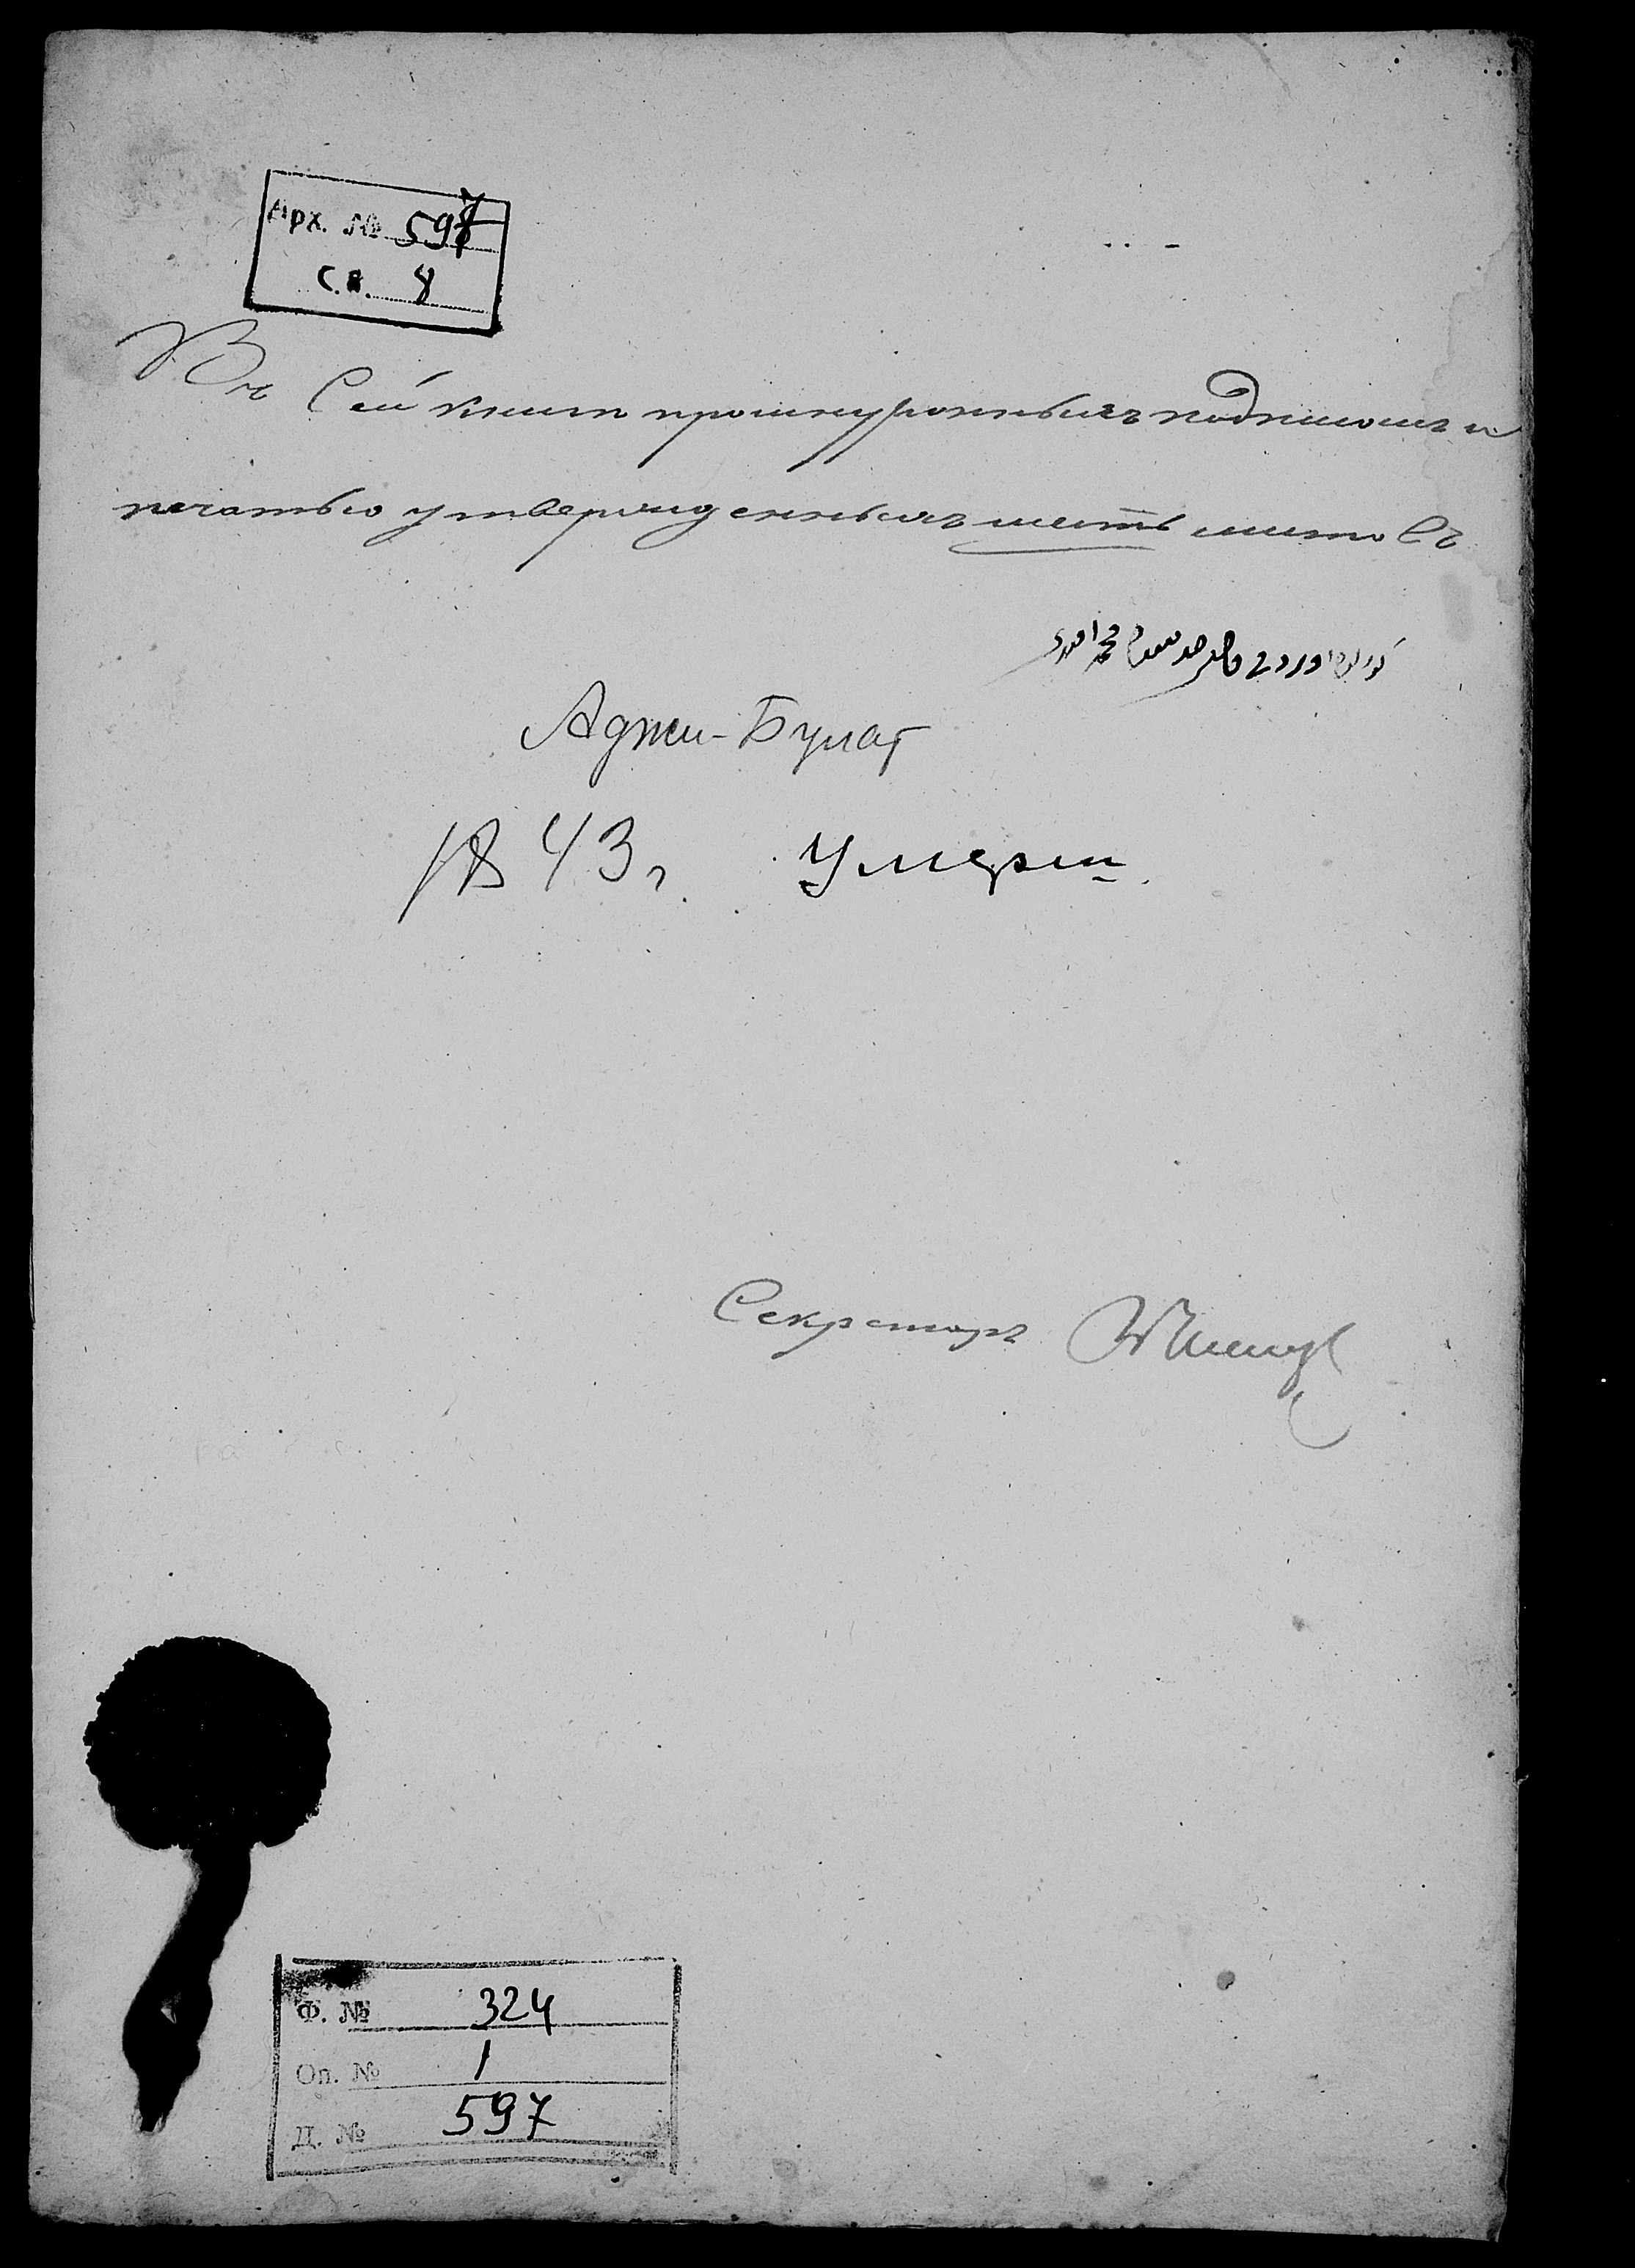 Арх. № 597
С.в. 8
Въ Сей книги прошнурованныхъ подписью и
печатью утвержденныхъ шесть листовъ
Аджи-Булат
1843 г. Умерш.
Секретарь
Ф. № 324
Оп. № 1
Д. № 597